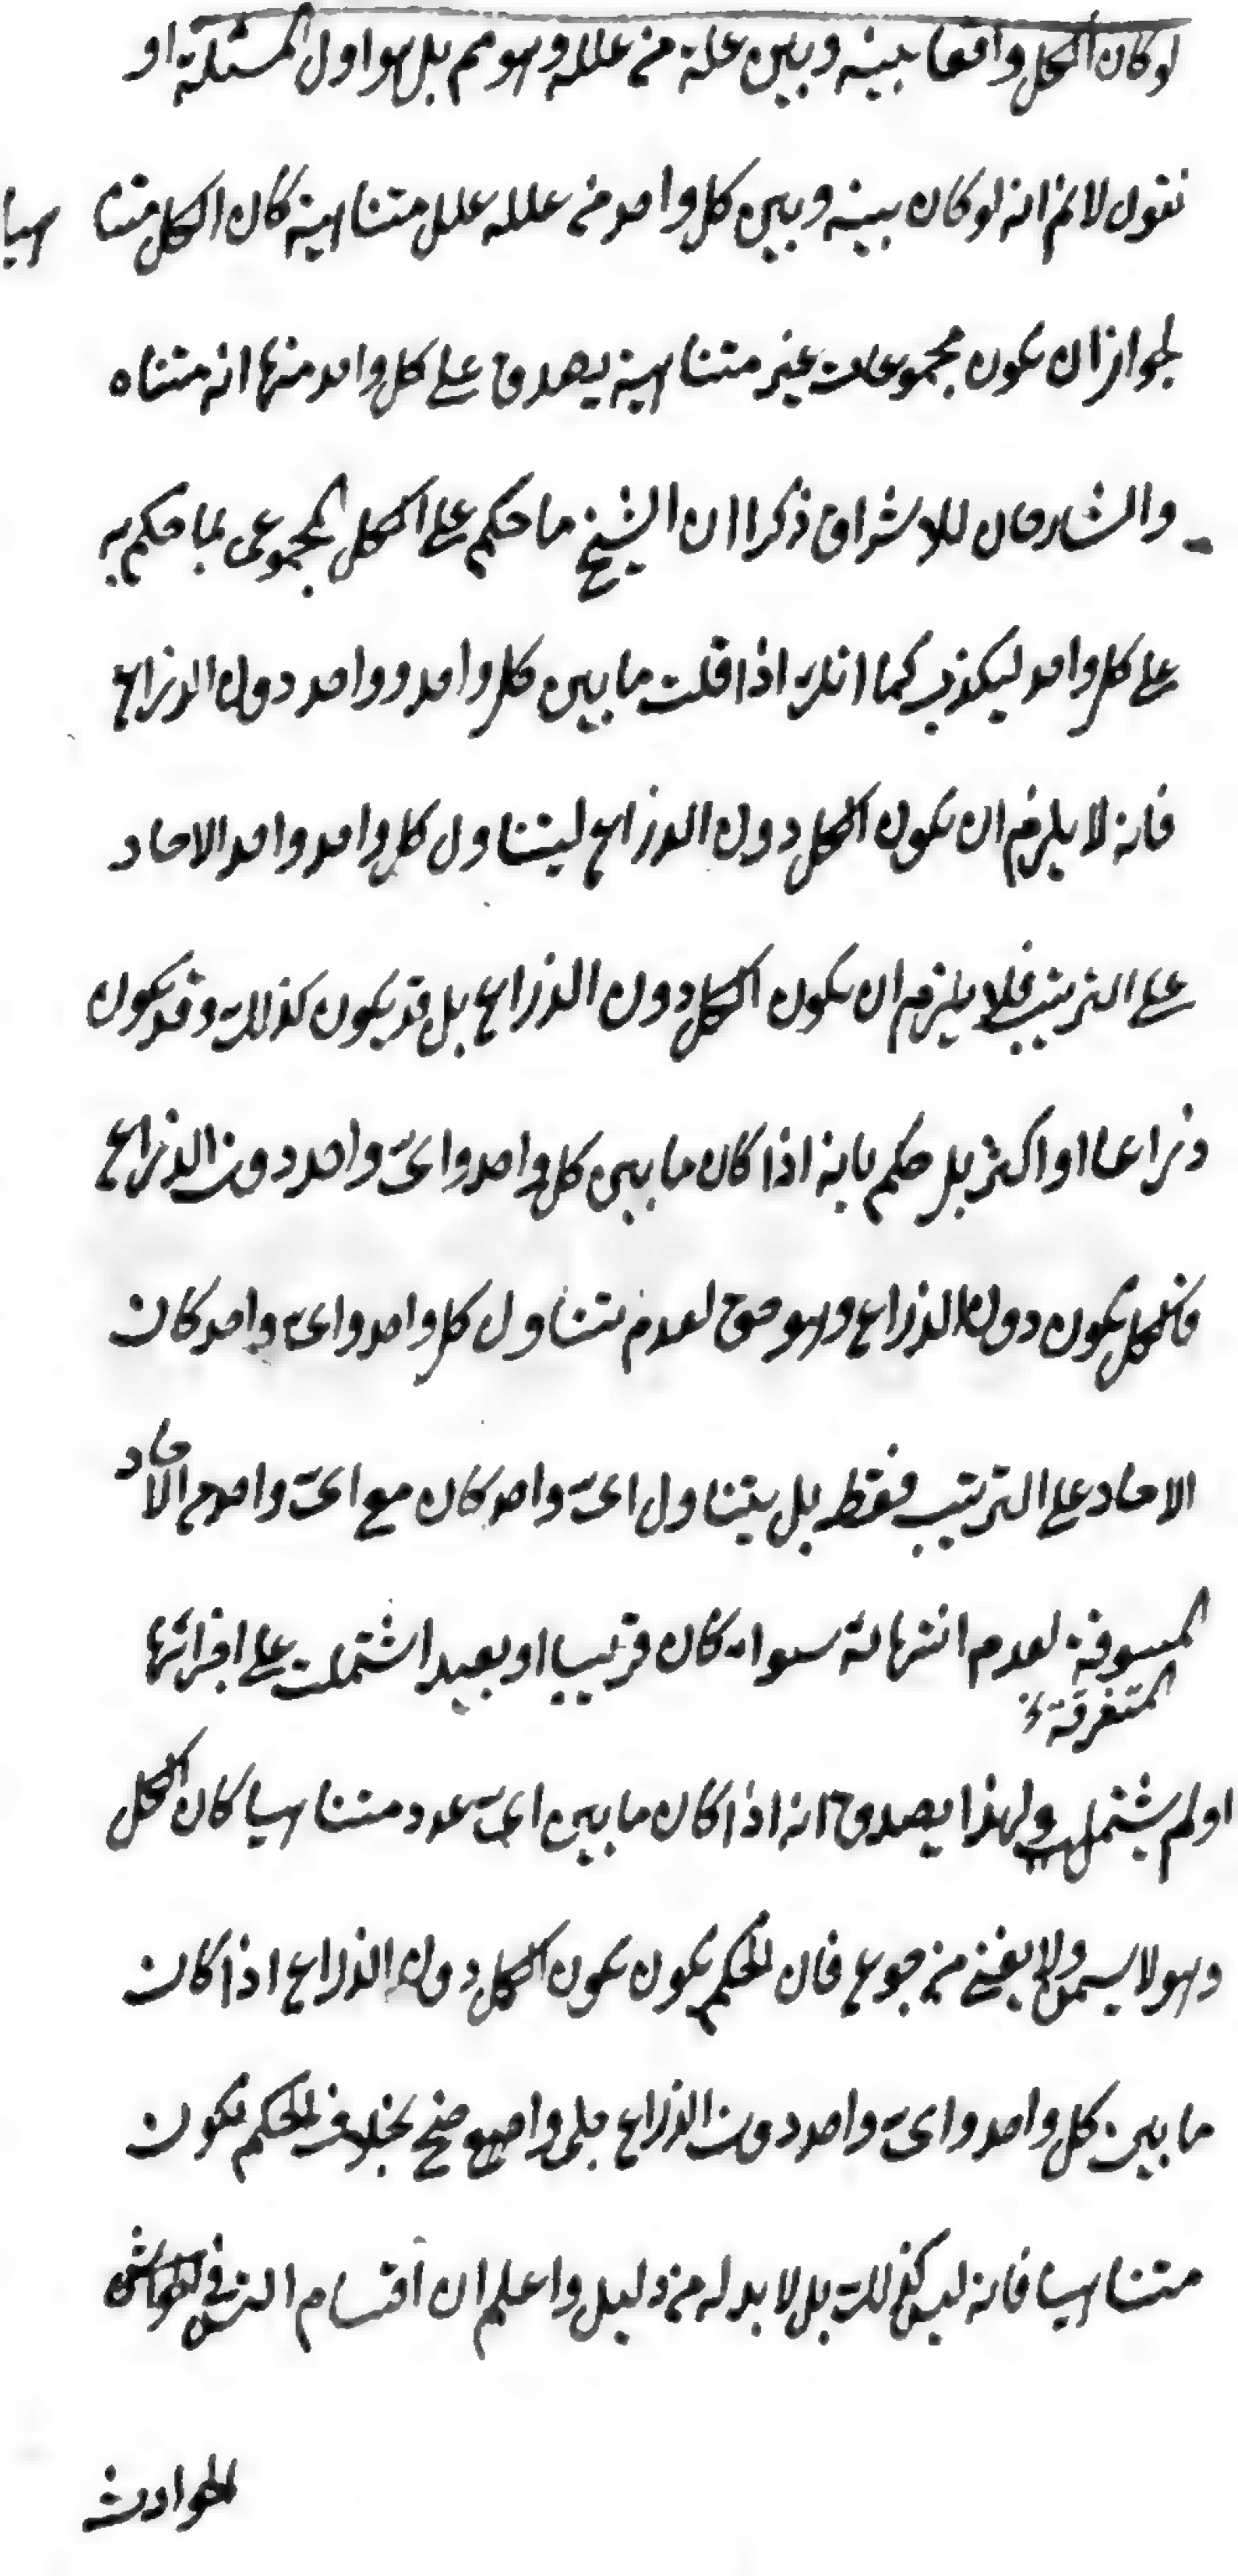 لو كان الكل واقعا بينه وبين علة من علله وهو مم بل هو اول المسئلة او
نقول لا نم انه لو كان بينه وبين كل واحد من علله علل متناهية كان الكل متنا هيا
لجواز ان يكون مجموعات غير متناهية يصدق على كل واحد منها انه متناه
والشارحان للاشراق ذكرا ان الشيخ ما حكم على الكل المجموعى بما حكم به
على كل واحد ليكذب كما انك اذا قلت ما بين كل واحد وواحد دون الذراع
فانه لا يلزم ان يكون الكل دون الذراع ليتناول كل واحد واحد الاحاد
على الترتيب فلا يلزم ان يكون الكل دون الذراع بل قد يكون كذلك وقد يكون
ذراعا او اكثر بل حكم بانه اذا كان ما بين كل واحد واى واحد دون الذراع
فالكل يكون دون الذراع وهو حق لعدم تناول كل واحد واى واحد كان
الاحاد على الترتيب فقط بل يتناول اى واحد كان مع اى واحد من الاحاد
لعدم انتهائه سواء كان قريبا او بعيدا اشتملت على اجزائها
المتفرقة
او لم يشتمل ولهذا يصدق انه اذا كان ما بين اى عدد متناهيا كان الكل
وهو لا يسمن ولا يغنى من جوع فان الحكم يكون يكون الكل دون الذراع اذا كان
ما بين كل واحد واى واحد دون الذراع جلى واضح صح بخلاف الحكم بكون
متناهيا فانه ليس كذلك بل لا بد له من دليل واعلم ان اقسام التس فى
الحوادث